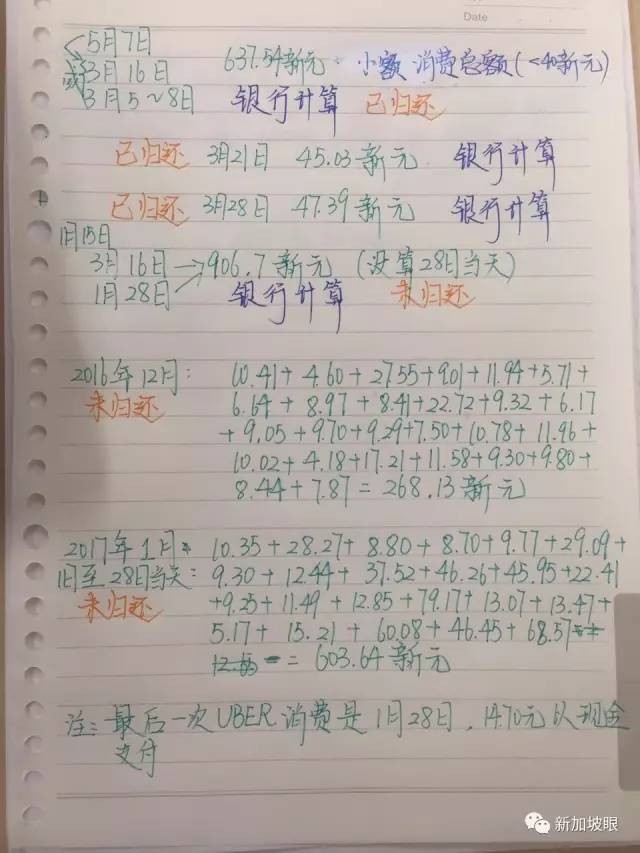 Date
5月7日
或3月16日 637.54新元 · 小额消费总额(<40新元)
3月5~8日 银行计算 已归还
已归还 3月21日 45.03新元 银行计算
已归还 3月28日 47.39新元 银行计算
1月15日
3月16日→906.7新元 (没算28日当天)
1月28日 银行计算 未归还
2016年12月: 10.41+4.60+27.55+9.01+11.94+5.71+
未归还 6.64+8.97+8.41+22.72+9.32+6.17
+9.05+9.70+9.29+7.50+10.78+11.96+
10.02+4.18+17.21+11.58+9.30+9.80+
8.44+7.87=268.13新元
2017年1月 10.35+28.27+8.80+8.70+9.77+29.09+
1日至28日当天: 9.30+12.44+37.52+46.26+45.95+22.41
未归还 +9.25+11.49+12.85+79.17+13.07+13.47+
5.17+15.21+60.08+46.45+68.57
=603.64新元
注: 最后一次UBER消费是1月28日,14.70元以现金
支付
新加坡眼